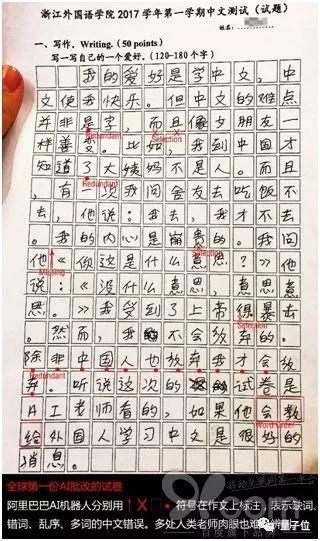 浙江外国语学院 2017 学年第一学期中文测试（试题）
一、写作。Writing.（50 points）
写一写自己的一个爱好。（120-180 个字）
我的爱好是学中文，中
文使我快乐。但中文的难点
并非是字，而且像女朋友一
Redundant
Selection
样善变。比如，我到中国才
知道了大姨妈不是人。而且
Redundant
，有一次我问舍友去吃饭不
去，他说：我去，我才不去
Selection
。我的内心是崩贵的。我问
他《你这是什么意思？》他
Missing
说：《没什么意思，意思意
思。》我受到了上帝很暴击
Selection
。然而，我不会放弃的。
除非中国人也放弃我才会放
Redundant
弃。听说这次的试卷是
AI老师看的，如果他会教
Word Order
给外国人学习中文是很好的
消息。
全球第一份AI批改的试卷
阿里巴巴AI机器人分别用 ↑ X □ • 符号在作文上标注，表示缺词、
错词、乱序、多词的中文错误。多处人类老师肉眼也难辨
量子位